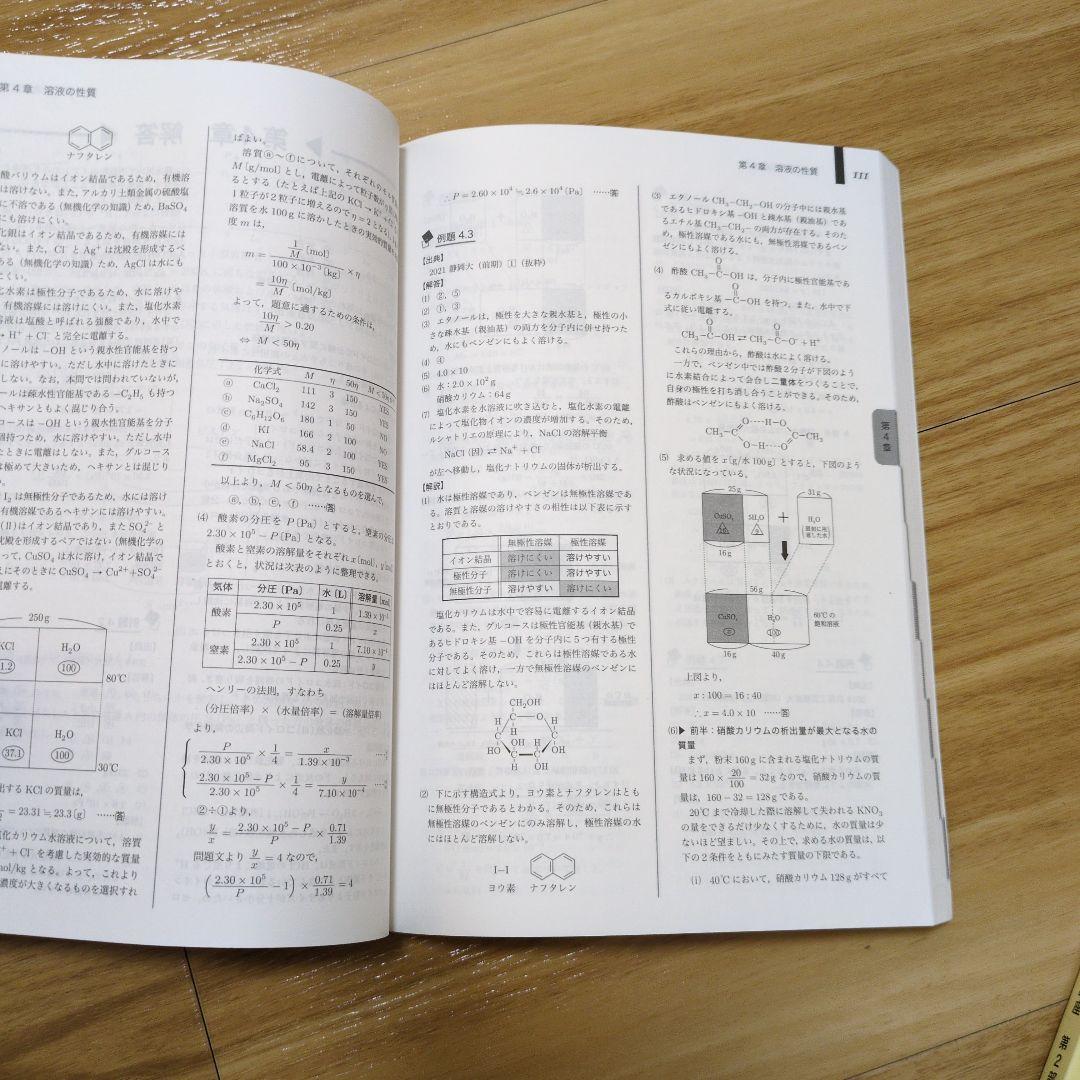 第4章 溶液の性質
ナフタレン
酸バリウムはイオン結晶であるため、有機溶
は溶けない。また、アルカリ土類金属の硫酸塩
に不溶である（無機化学の知識）ため、BaSO₄
にも溶けにくい。
化銀はイオン結晶であるため、有機溶媒には
ない。また、Cl⁻とAg⁺は沈殿を形成するペ
ある（無機化学の知識）ため、AgClは水にも
こくい。
化水素は極性分子であるため、水に溶けや
有機溶媒には溶けにくい。また、塩化水素
溶液は塩酸と呼ばれる強酸であり、水中で
→ H⁺ + Cl⁻ と完全に電離する。
ノールは－OHという親水性官能基を持つ
に溶けやすい。ただし水中に溶けたときに
しない。なお、本問では問われていないが、
ールは疎水性官能基である－C₂H₅も持つ
ヘキサンともよく混じり合う。
コースは－OHという親水性官能基を分子
個持つため、水に溶けやすい。ただし水中
たときに電離はしない。また、グルコース
は極めて大きいため、ヘキサンとは混じり
I₂は無極性分子であるため、水には溶け
有機溶媒であるヘキサンには溶けやすい。
(II)はイオン結晶であり、またSO₄²⁻と
沈殿を形成するペアではない（無機化学の
って、CuSO₄は水に溶け、イオン結晶で
えにそのときにCuSO₄→Cu²⁺+SO₄²⁻
離する。
250g
KCl H₂O
1.2 100
80℃
KCl H₂O
37.1 100
30℃
出するKClの質量は、
= 23.31≒23.3〔g〕 ……答
化カリウム水溶液について、溶質
⁺ + Cl⁻を考慮した実効的な質量
mol/kgとなる。よって、これより
濃度が大きくなるものを選択すれ
ばよい。
溶質ⓐ～ⓕについて、それぞれのモル
M〔g/mol〕とし、電離によって粒子数が
るとする（たとえば上記のKCl→K⁺
1粒子が2粒子に増えるのでη=2となる）
溶質を水100gに溶かしたときの実効的質量
度mは、
m = 1/M〔mol〕 / 100×10⁻³〔kg〕 × η
= 10η/M〔mol/kg〕
よって、題意に適するための条件は、
10η/M > 0.20
⇔ M < 50η
化学式 M η 50η M<50η
ⓐ CaCl₂ 111 3 150 YES
ⓑ Na₂SO₄ 142 3 150 YES
ⓒ C₆H₁₂O₆ 180 1 50 NO
ⓓ KI 166 2 100 NO
ⓔ NaCl 58.4 2 100 YES
ⓕ MgCl₂ 95 3 150 YES
以上より、M<50ηとなるものを選んで、
ⓐ、ⓑ、ⓔ、ⓕ ……答
(4) 酸素の分圧をP〔Pa〕とすると、窒素の分圧
2.30×10⁵－P〔Pa〕となる。
酸素と窒素の溶解量をそれぞれx〔mol〕, y〔mol〕
とおくと、状況は次表のように整理できる。
気体 分圧〔Pa〕 水〔L〕 溶解量〔mol〕
酸素 2.30×10⁵ 1 1.39×10⁻³
P 0.25 x
窒素 2.30×10⁵ 1 7.10×10⁻⁴
2.30×10⁵－P 0.25 y
ヘンリーの法則、すなわち
（分圧倍率）×（水量倍率）=（溶解量倍率）
より、
P/2.30×10⁵ × 1/4 = x/1.39×10⁻³
2.30×10⁵－P/2.30×10⁵ × 1/4 = y/7.10×10⁻⁴
②÷①より、
y/x = 2.30×10⁵－P/P × 0.71/1.39
問題文より y/x = 4なので、
(2.30×10⁵/P －1) × 0.71/1.39 = 4
第4章 溶液の性質 111
∴P = 2.60×10⁴≒2.6×10⁴〔Pa〕 ……答
例題 4.3
【出典】
2021 静岡大（前期）1（抜粋）
【解答】
(1) ②、⑤
(2) ①、③
(3) エタノールは、極性を大きな親水基と、極性の小
さな疎水基（親油基）の両方を分子内に併せ持つた
め、水にもベンゼンにもよく溶ける。
(4) ④
(5) 4.0×10
(6) 水：2.0×10²g
硝酸カリウム：64g
(7) 塩化水素を水溶液に吹き込むと、塩化水素の電離
によって塩化物イオンの濃度が増加する。そのため、
ルシャトリエの原理により、NaClの溶解平衡
NaCl（固）⇄ Na⁺ + Cl⁻
が左へ移動し、塩化ナトリウムの固体が析出する。
【解説】
(1) 水は極性溶媒であり、ベンゼンは無極性溶媒であ
る。溶質と溶媒の溶けやすさの相性は以下表に示す
とおりである。
無極性溶媒 極性溶媒
イオン結晶 溶けにくい 溶けやすい
極性分子 溶けにくい 溶けやすい
無極性分子 溶けやすい 溶けにくい
塩化カリウムは水中で容易に電離するイオン結晶
である。また、グルコースは極性官能基（親水基）で
あるヒドロキシ基－OHを分子内に5つ有する極性
分子である。そのため、これらは極性溶媒である水
に対してよく溶け、一方で無極性溶媒のベンゼンに
はほとんど溶解しない。
CH₂OH
H O H
H
OH H
HO OH
H OH
(2) 下に示す構造式より、ヨウ素とナフタレンはとも
に無極性分子であるとわかる。そのため、これらは
無極性溶媒のベンゼンにのみ溶解し、極性溶媒の水
にはほとんど溶解しない。
I－I
ヨウ素 ナフタレン
(3) エタノールCH₃－CH₂－OHの分子中には親水基
であるヒドロキシ基－OHと疎水基（親油基）であ
るエチル基CH₃CH₂－の両方が存在する。そのた
め、極性溶媒である水にも、無極性溶媒であるベン
ゼンにもよく溶ける。
O
(4) 酢酸CH₃－C－OHは、分子内に極性官能基であ
O
るカルボキシ基－C－OHを持つ。また、水中で下
式に従い電離する。
O O
CH₃－C－OH ⇄ CH₃－C－O⁻ + H⁺
これらの理由から、酢酸は水によく溶ける。
一方で、ベンゼン中では酢酸2分子が下図のよう
に水素結合によって会合し二量体をつくることで、
自身の極性を打ち消し合うことができる。そのため、
酢酸はベンゼンにもよく溶ける。
O…H－O
CH₃－C C－CH₃
O－H…O
(5) 求める値をx〔g/水100g〕とすると、下図のよう
な状況になっている。
25g 31g
CuSO₄ 5H₂O + H₂O
16 9
16g
56g
CuSO₄ H₂O
x 100
60℃の
飽和溶液
16g 40g
上図より、
x：100 = 16：40
∴x = 4.0×10 ……答
(6)▶ 前半：硝酸カリウムの析出量が最大となる水の
質量
まず、粉末160gに含まれる塩化ナトリウムの質
量は160× 20/100 = 32gなので、硝酸カリウムの質
量は、160－32 = 128gである。
20℃まで冷却した際に溶解して失われるKNO₃
の量をできるだけ少なくするために、水の質量は少
ないほど望ましい。その上で、求める水の質量は、以
下の2条件をともにみたす質量の下限である。
(i) 40℃において、硝酸カリウム128gがすべて
第4章